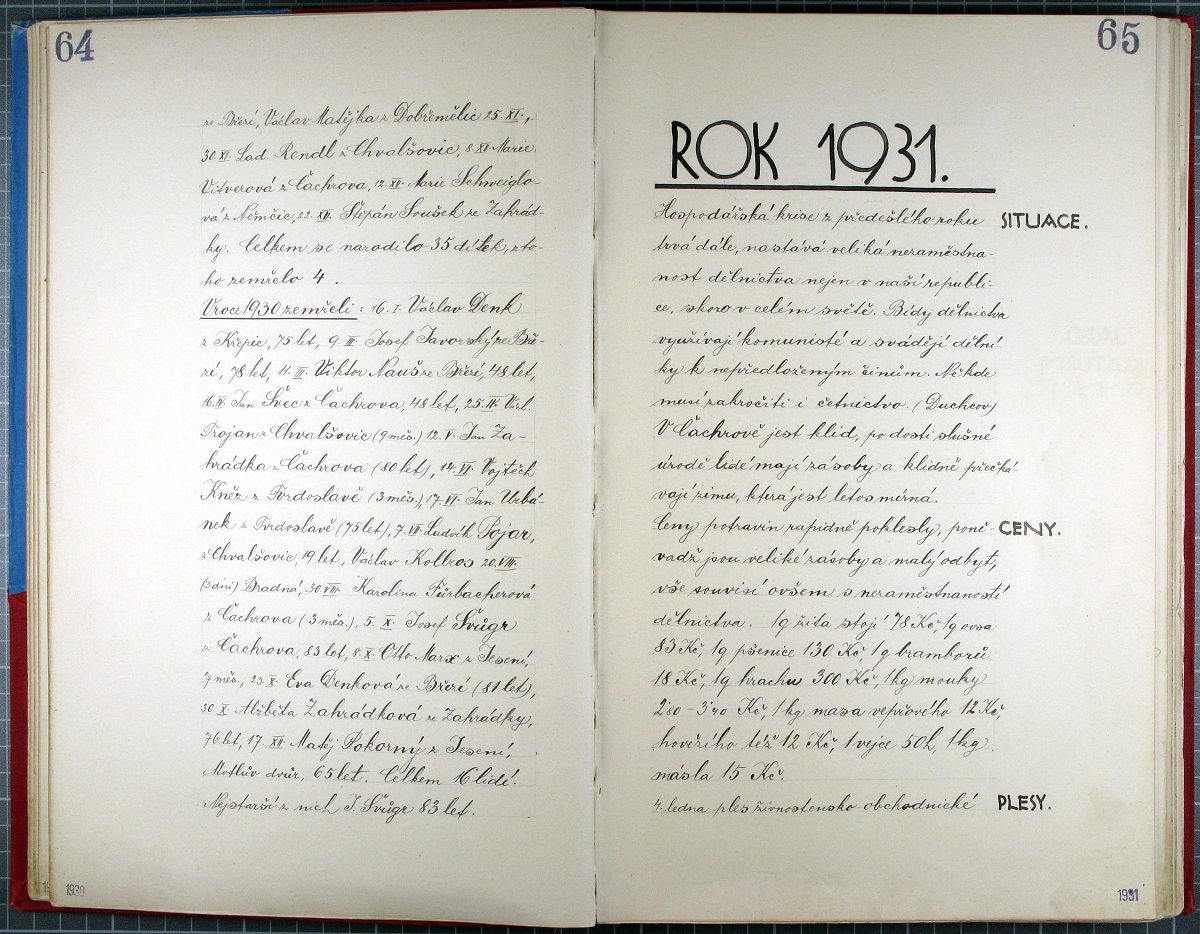 64
ze Březí, Václav Matějka z Dobřemělic 25. XI.,
30. XI. Lad. Rendl z Chvalšovic, 8. XII. Marie
Vitverová z Čachrova, 12. XII. Marie Schweiglo-
vá z Němčic, 22. XII. Štěpán Soušek ze Zahrád-
ky. Celkem se narodilo 35 dítek, z to-
ho zemřelo 4.
V roce 1930 zemřeli: 16. I. Václav Denk
z Křepic, 75 let, 9. III. Josef Javorský ze Bře-
zí, 78 let, 11. III. Viktor Nauš ze Březí, 48 let,
16. IV. Jan Švec z Čachrova, 48 let, 25. IV. Václ.
Trojan z Chvalšovic (9 měs.) 12. V. Jan Za-
hrádka z Čachrova (80 let), 14. VI. Vojtěch
Kněz z Tvrdoslavě (3 měs.), 17. VI. Jan Urbá-
nek z Tvrdoslavě (75 let), 7. VII. Ludvík Pojar,
z Chvalšovic, 19 let, Václav Kolbros 20. VIII.
(3 dni) Bradná, 30. VIII. Karolina Fürbacherová
z Čachrova (3 měs.), 5. X. Josef Švůgr
z Čachrova, 83 let, 8. X. Otto Marx z Jesení,
7 měs., 23. X. Eva Denková ze Březí (81 let),
30. X. Alžběta Zahrádková ze Zahrádky,
76 let, 17. XII. Matěj Pokorný z Jesení,
Motlův dvůr, 65 let. Celkem 16 lidí.
Nejstarší z nich J. Švůgr 83 let.
1930
65
ROK 1931.
Hospodářská krise z předešlého roku SITUACE.
trvá dále, nastává veliká nezaměstna-
nost dělnictva nejen v naší republi-
ce, skoro v celém světě. Bídy dělnictva
využívají komunisté a svádějí dělní-
ky k nepředloženým činům. Někde
musí zakročiti i četnictvo. (Duchcov)
V Čachrově jest klid, po dosti slušné
úrodě lidé mají zásoby a klidně přečká-
vají zimu, která jest letos mírná.
Ceny potravin rapidně poklesly, poně- CENY.
vadž jsou veliké zásoby a malý odbyt,
vše souvisí ovšem s nezaměstnaností
dělnictva. 1q žita stojí 78 Kč, 1q ovsa
83 Kč, 1q pšenice 130 Kč, 1q bramborů
18 Kč, 1q hrachu 300 Kč, 1kg mouky
2'80 - 3'40 Kč, 1 kg masa vepřového 12 Kč,
hovězího též 12 Kč, 1 vejce 50h, 1 kg
másla 15 Kč.
4. ledna ples živnostensko-obchodnické PLESY.
1931